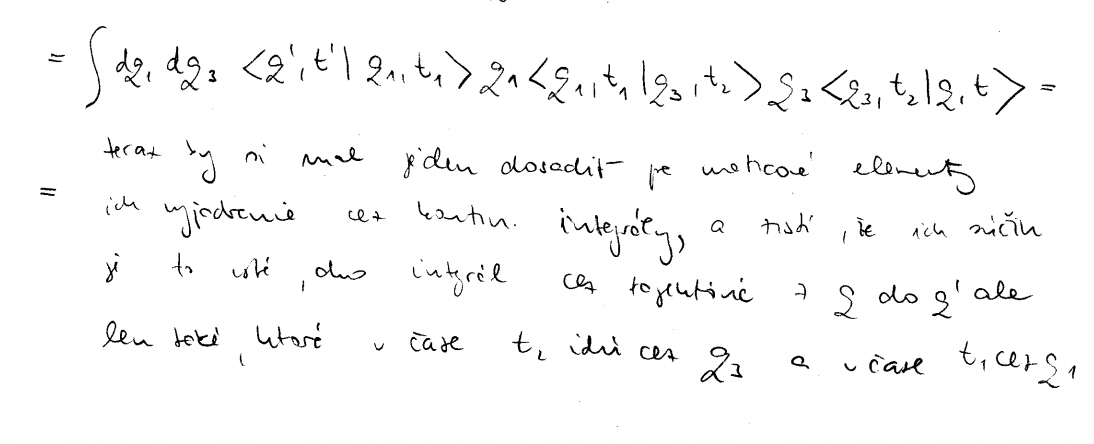 = ∫ dq₁ dq₃ <q',t'|q₁,t₁> q₁ <q₁,t₁|q₃,t₂> q₃ <q₃,t₂|q,t> =
teraz by si mal jeden dosadiť elementy
= ich vyjadrenie cez kontin. integrály, a zistí, že ich súčin
je to isté, ako integrál cez trajektórie z q do q' ale
len také, ktoré v čase t₂ idú cez q₃ a v čase t₁ cez q₁